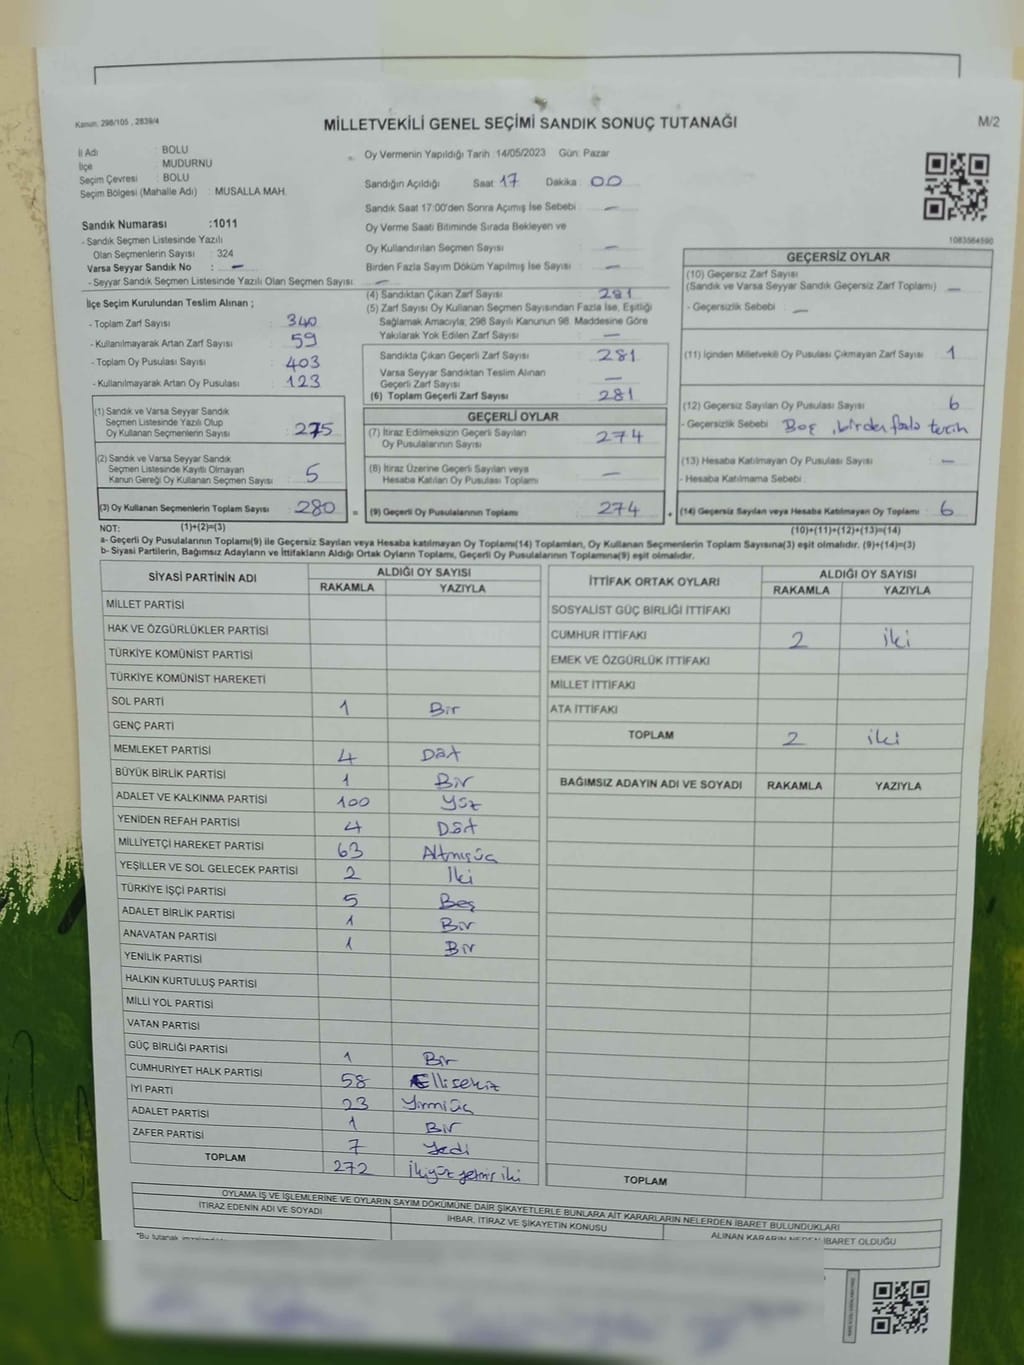 Kanun: 298/105 , 2839/4
MİLLETVEKİLİ GENEL SEÇİMİ SANDIK SONUÇ TUTANAĞI
M/2
İl Adı : BOLU
İlçe : MUDURNU
Seçim Çevresi : BOLU
Seçim Bölgesi (Mahalle Adı) : MUSALLA MAH.
Sandık Numarası :1011
- Sandık Seçmen Listesinde Yazılı
Olan Seçmenlerin Sayısı : 324
Varsa Seyyar Sandık No : -
- Seyyar Sandık Seçmen Listesinde Yazılı Olan Seçmen Sayısı : -
İlçe Seçim Kurulundan Teslim Alınan ;
- Toplam Zarf Sayısı : 340
- Kullanılmayarak Artan Zarf Sayısı : 59
- Toplam Oy Pusulası Sayısı : 403
- Kullanılmayarak Artan Oy Pusulası : 123
(1) Sandık ve Varsa Seyyar Sandık
Seçmen Listesinde Yazılı Olup
Oy Kullanan Seçmenlerin Sayısı : 275
(2) Sandık ve Varsa Seyyar Sandık
Seçmen Listesinde Kayıtlı Olmayan
Kanun Gereği Oy Kullanan Seçmen Sayısı : 5
(3) Oy Kullanan Seçmenlerin Toplam Sayısı : 280
Oy Vermenin Yapıldığı Tarih :14/05/2023 Gün: Pazar
Sandığın Açıldığı Saat : 17 Dakika : 00
Sandık Saat 17:00'den Sonra Açımış İse Sebebi : -
Oy Verme Saati Bitiminde Sırada Bekleyen ve
Oy Kullandırılan Seçmen Sayısı : -
Birden Fazla Sayım Döküm Yapılmış İse Sayısı : -
(4) Sandıktan Çıkan Zarf Sayısı : 281
(5) Zarf Sayısı Oy Kullanan Seçmen Sayısından Fazla İse, Eşitliği
Sağlamak Amacıyla; 298 Sayılı Kanunun 98. Maddesine Göre
Yakılarak Yok Edilen Zarf Sayısı : -
Sandıkta Çıkan Geçerli Zarf Sayısı : 281
Varsa Seyyar Sandıktan Teslim Alınan
Geçerli Zarf Sayısı : -
(6) Toplam Geçerli Zarf Sayısı : 281
GEÇERLİ OYLAR
(7) İtiraz Edilmeksizin Geçerli Sayılan
Oy Pusulalarının Sayısı : 274
(8) İtiraz Üzerine Geçerli Sayılan veya
Hesaba Katılan Oy Pusulası Toplamı : -
= (9) Geçerli Oy Pusulalarının Toplamı : 274 +
1083564590
GEÇERSİZ OYLAR
(10) Geçersiz Zarf Sayısı
(Sandık ve Varsa Seyyar Sandık Geçersiz Zarf Toplamı) : -
- Geçersizlik Sebebi : -
(11) İçinden Milletvekili Oy Pusulası Çıkmayan Zarf Sayısı : 1
(12) Geçersiz Sayılan Oy Pusulası Sayısı : 6
- Geçersizlik Sebebi : Boş, birden fazla tercih
(13) Hesaba Katılmayan Oy Pusulası Sayısı : -
- Hesaba Katılmama Sebebi :
(14) Geçersiz Sayılan veya Hesaba Katılmayan Oy Toplamı : 6
NOT: (1)+(2)=(3)
(10)+(11)+(12)+(13)=(14)
a- Geçerli Oy Pusulalarının Toplamı(9) ile Geçersiz Sayılan veya Hesaba katılmayan Oy Toplamı(14) Toplamları, Oy Kullanan Seçmenlerin Toplam Sayısına(3) eşit olmalıdır. (9)+(14)=(3)
b- Siyasi Partilerin, Bağımsız Adayların ve İttifakların Aldığı Ortak Oyların Toplamı, Geçerli Oy Pusulalarının Toplamına(9) eşit olmalıdır.
SİYASİ PARTİNİN ADI ALDIĞI OY SAYISI
RAKAMLA YAZIYLA
MİLLET PARTİSİ
HAK VE ÖZGÜRLÜKLER PARTİSİ
TÜRKİYE KOMÜNİST PARTİSİ
TÜRKİYE KOMÜNİST HAREKETİ
SOL PARTİ 1 Bir
GENÇ PARTİ
MEMLEKET PARTİSİ 4 Dört
BÜYÜK BİRLİK PARTİSİ 1 Bir
ADALET VE KALKINMA PARTİSİ 100 Yüz
YENİDEN REFAH PARTİSİ 4 Dört
MİLLİYETÇİ HAREKET PARTİSİ 63 Altmışüç
YEŞİLLER VE SOL GELECEK PARTİSİ 2 İki
TÜRKİYE İŞÇİ PARTİSİ 5 Beş
ADALET BİRLİK PARTİSİ 1 Bir
ANAVATAN PARTİSİ 1 Bir
YENİLİK PARTİSİ
HALKIN KURTULUŞ PARTİSİ
MİLLİ YOL PARTİSİ
VATAN PARTİSİ
GÜÇ BİRLİĞİ PARTİSİ 1 Bir
CUMHURİYET HALK PARTİSİ 58 Ellisekiz
İYİ PARTİ 23 Yirmiüç
ADALET PARTİSİ 1 Bir
ZAFER PARTİSİ 7 Yedi
TOPLAM 272 İkiyüzyetmişiki
İTTİFAK ORTAK OYLARI ALDIĞI OY SAYISI
RAKAMLA YAZIYLA
SOSYALİST GÜÇ BİRLİĞİ İTTİFAKI
CUMHUR İTTİFAKI 2 iki
EMEK VE ÖZGÜRLÜK İTTİFAKI
MİLLET İTTİFAKI
ATA İTTİFAKI
TOPLAM 2 iki
BAĞIMSIZ ADAYIN ADI VE SOYADI RAKAMLA YAZIYLA
TOPLAM
OYLAMA İŞ VE İŞLEMLERİNE VE OYLARIN SAYIM DÖKÜMÜNE DAİR ŞİKAYETLERLE BUNLARA AİT KARARLARIN NELERDEN İBARET BULUNDUKLARI
İTİRAZ EDENİN ADI VE SOYADI İHBAR, İTİRAZ VE ŞİKAYETİN KONUSU ALINAN KARARIN NEDEN İBARET OLDUĞU
*Bu tutanak